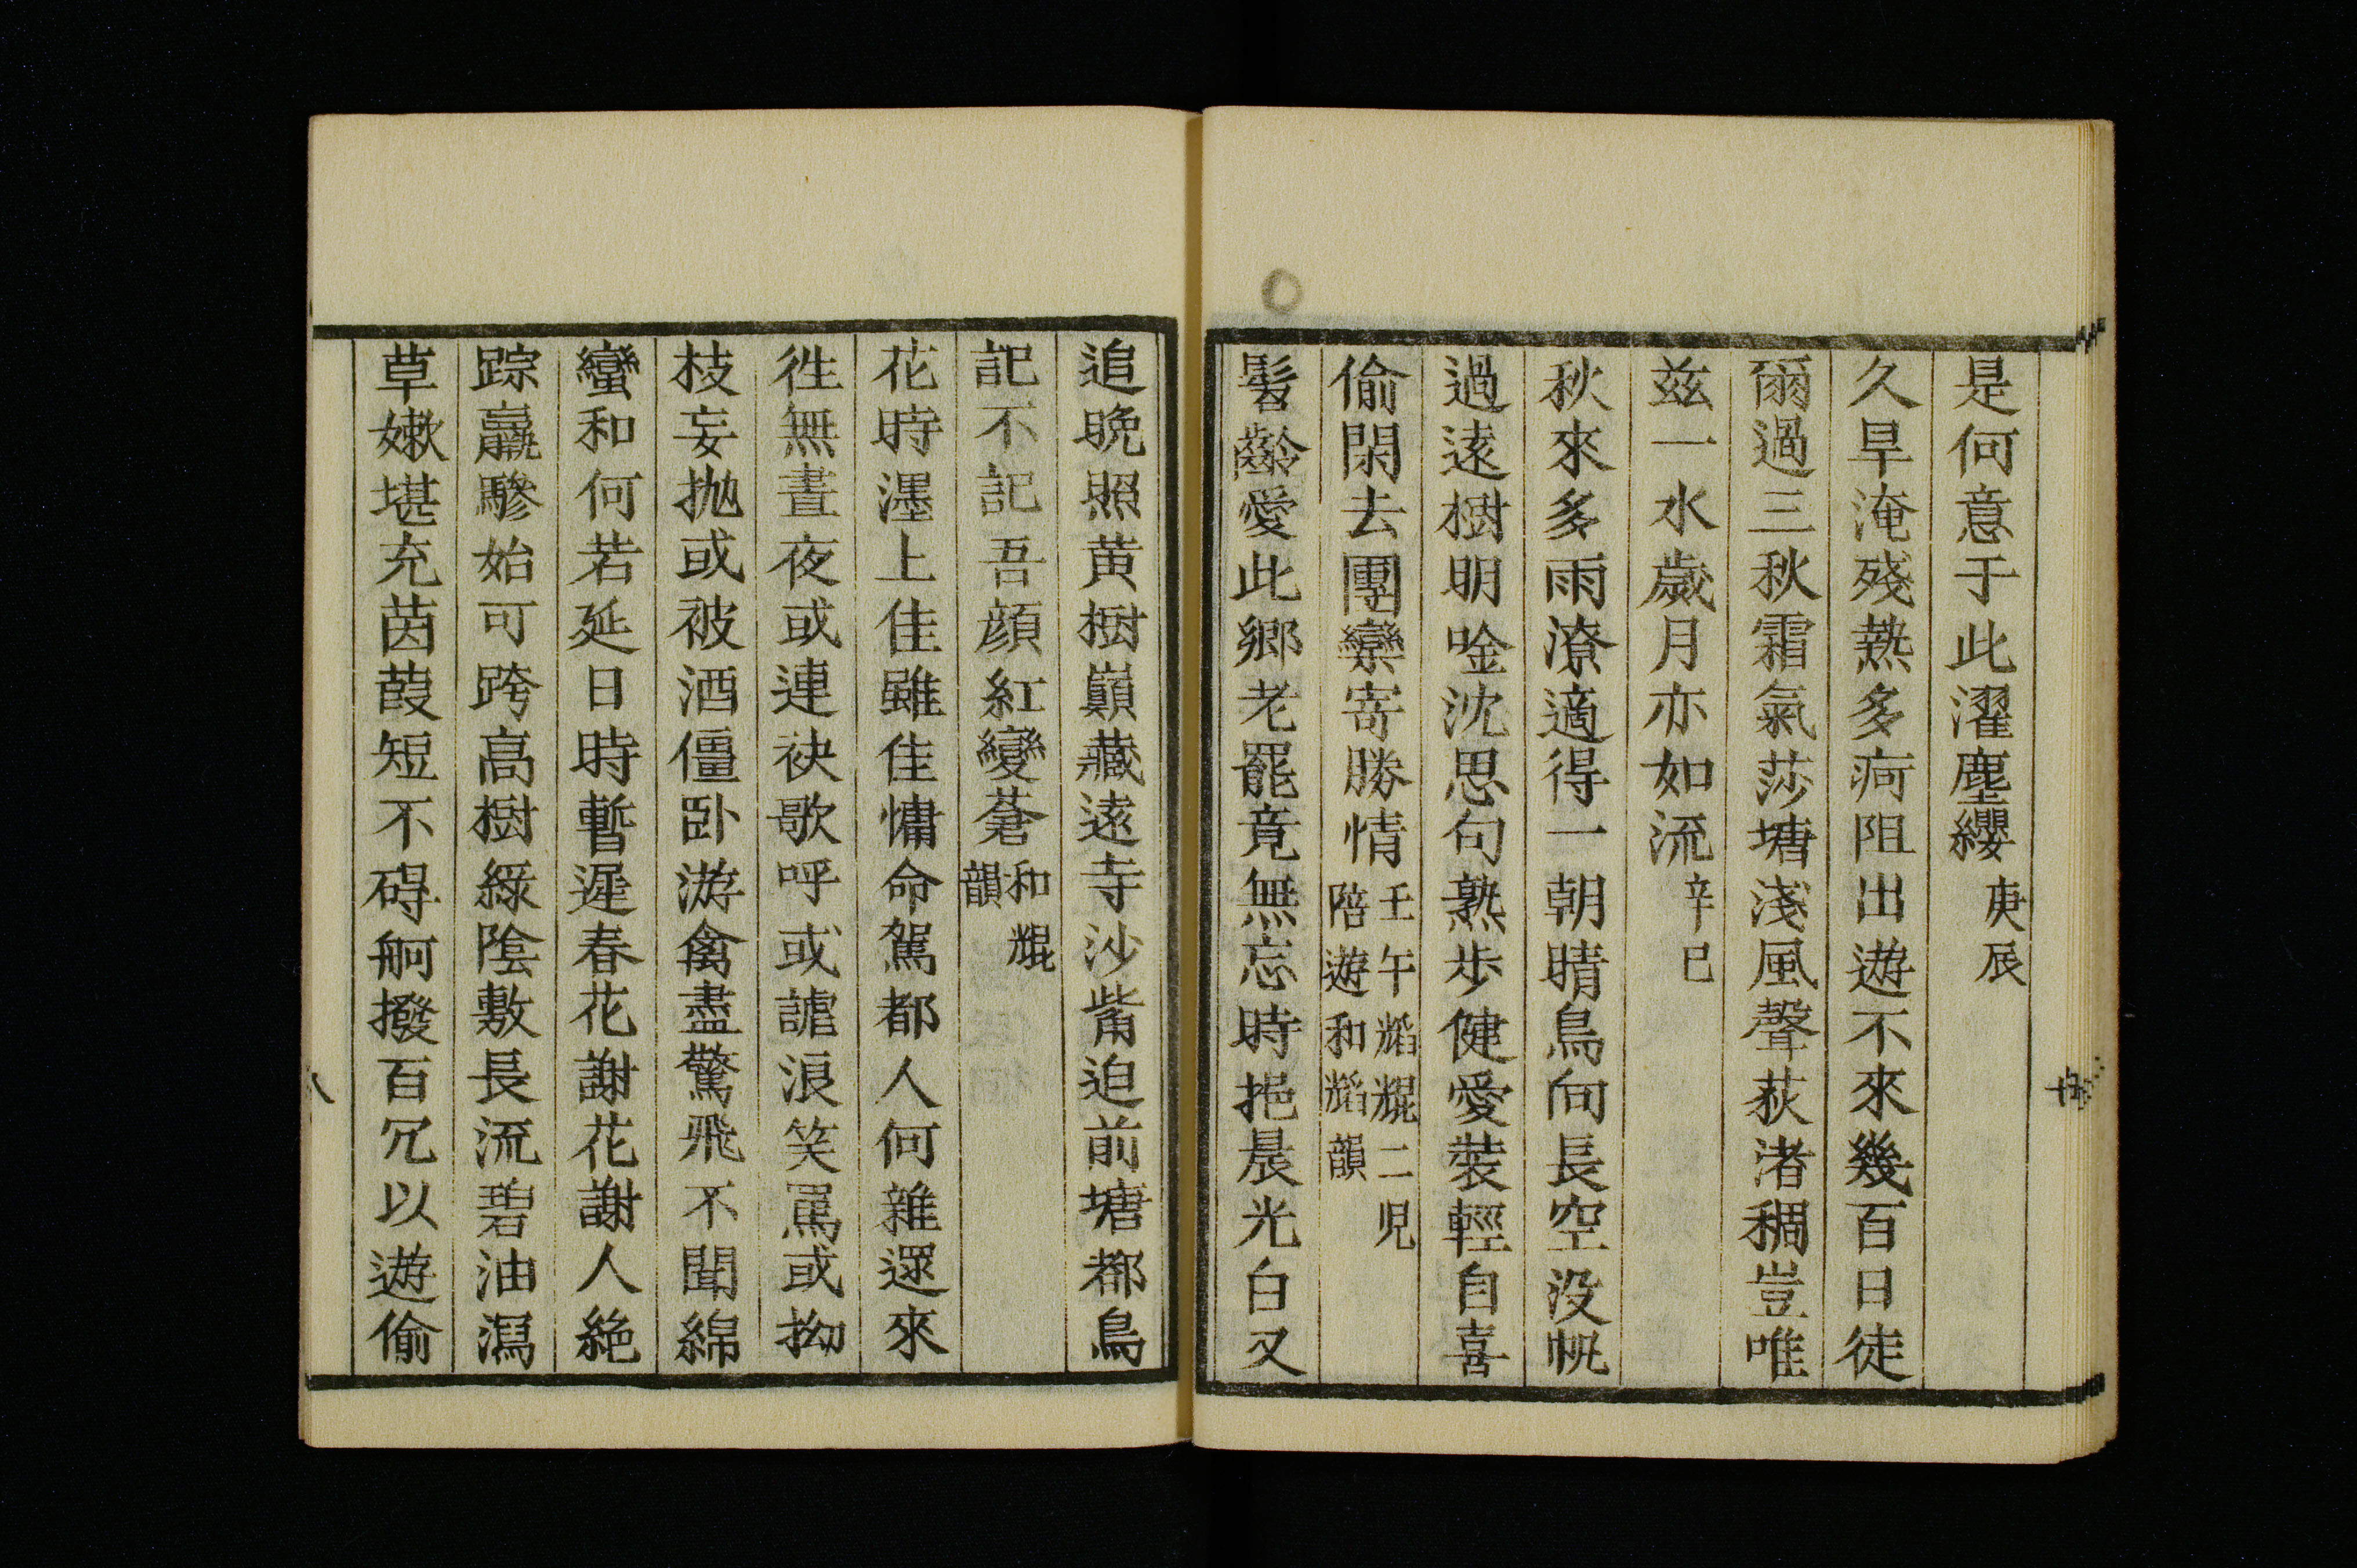 是何意于此濯塵纓庚辰
久旱淹殘熱多痾阻出遊不來幾百日徒
爾過三秋霜氣莎塘淺風聲荻渚稠豈唯
茲一水歲月亦如流辛巳
秋來多雨潦適得一朝晴鳥向長空没帆
過遠樹明唫沈思句熟歩健愛裝輕自喜
偷閑去團欒寄勝情壬午㷟焜二児
陪遊和㷟韻
髫齡愛此郷老罷竟無忘時挹晨光白又
追晩照黄樹巓藏遠寺沙觜迫前塘都鳥
記不記吾顔紅變蒼和焜
韻
花時濹上佳雖佳慵命駕都人何雜遝來
徃無晝夜或連袂歌呼或謔浪笑罵或拗
枝妄抛或被酒僵卧游禽盡驚飛不聞綿
蠻和何若延日時暫遲春花謝花謝人絶
踪羸驂始可跨高樹綠陰敷長流碧油瀉
草嫩堪充茵葭短不碍舸撥百冗以遊偷
八